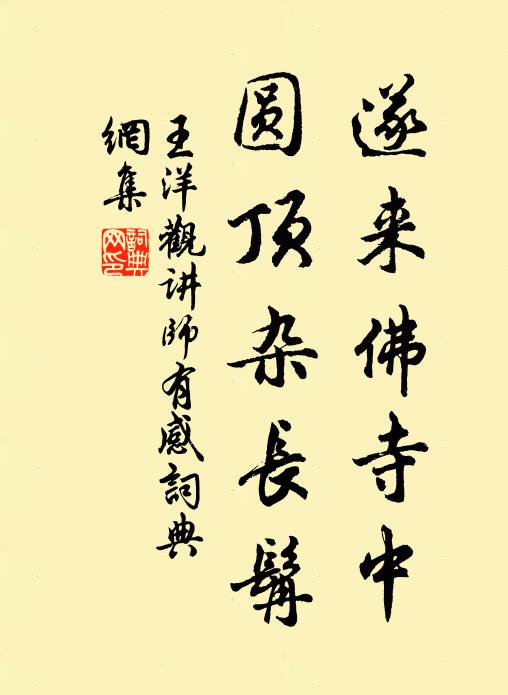 遂来佛寺中
圆顶杂長髯
王洋觀讲師有感詞典
網集
詞典
网印